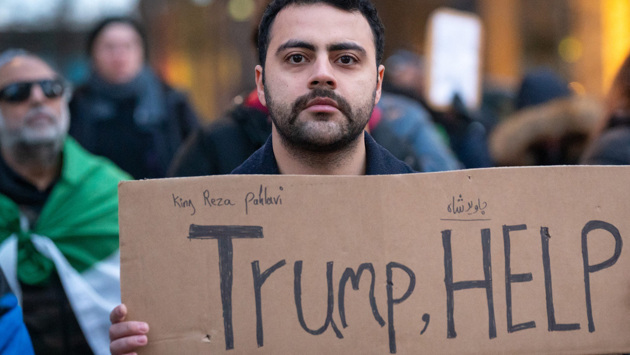 King Reza pahlavi
جاوید شاه
Trump, HELP